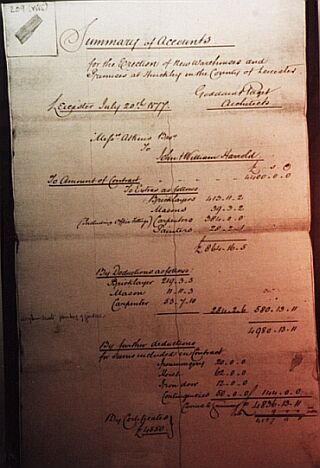 209 (
Summary of Accounts
for the Erection of New Warehouses and
Premises at Hinckley in the County of Leicester
Goddard & Paget
Architects
Leicester July 20th 1877
Messrs Atkins Bros
To
John & William Harold
£ s D
To Amount of Contract 4400.0.0
To Extras as follows
Bricklayers 413.11.2
Masons 39.3.2
(Including Office fittings) Carpenters 384.0.0
Painters 28.2.1
£ 864.16.5
By Deductions as follows
Bricklayer 219.3.3
Mason 11.11.3
Carpenter 53.7.10
284.2.6 580.13.11
4980.13.11
By further deductions
for Sums included in Contract
Ironmongery 20.0.0
Hoist 62.0.0
Iron door 12.0.0
Contingencies 50.0.0 144.0.0
4836.13.11
By Certificates
£4550